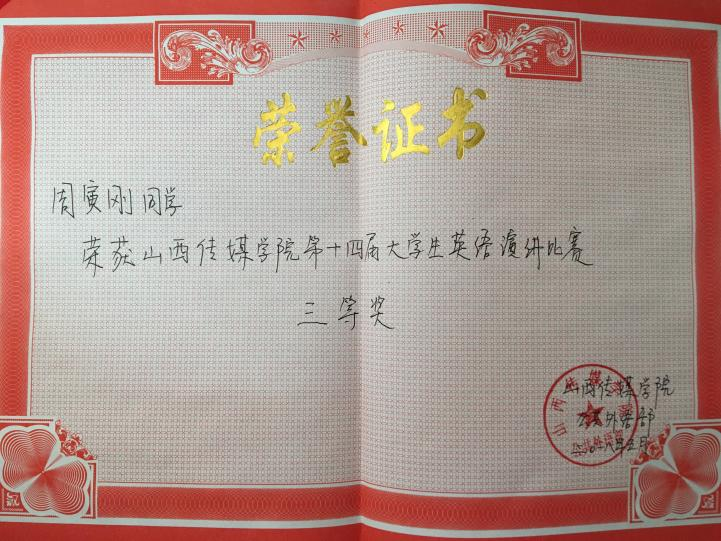 荣誉证书
周寅刚同学
荣获山西传媒学院第十四届大学生英语演讲比赛
三等奖
山西传媒学院
公共外语部
二〇一八年五月